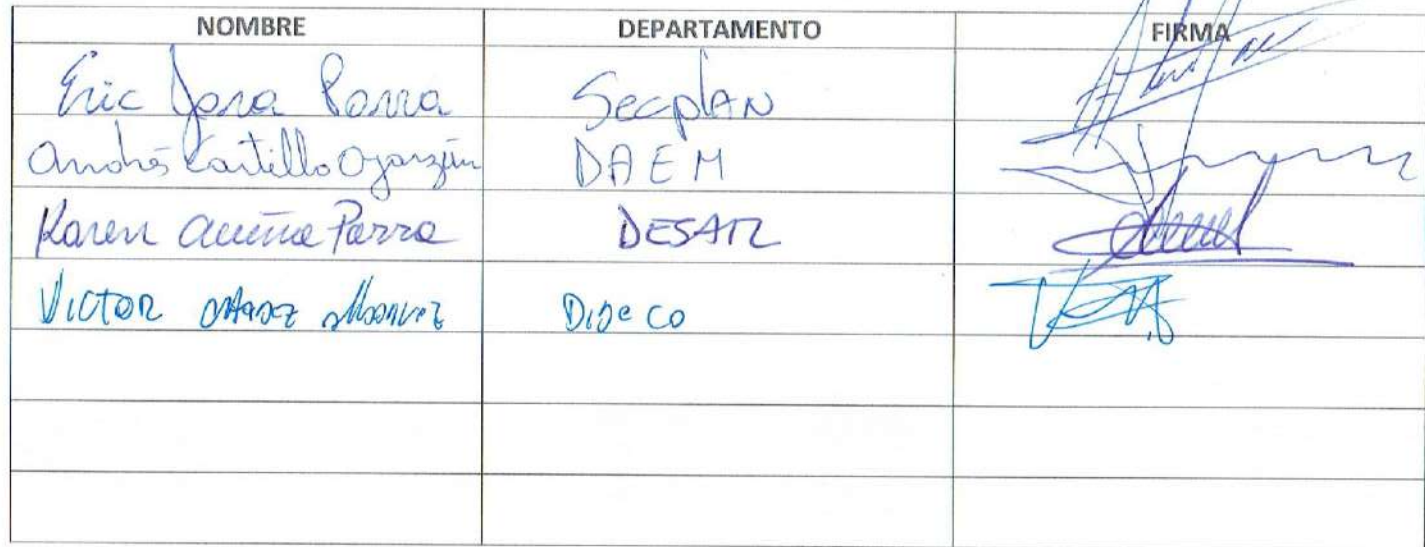 NOMBRE DEPARTAMENTO FIRMA
Eric Jara Parra Secplan
Andrés Castillo Oyarzún DAEM
Karen Acuña Parra DESAM
VICTOR DIDeCo